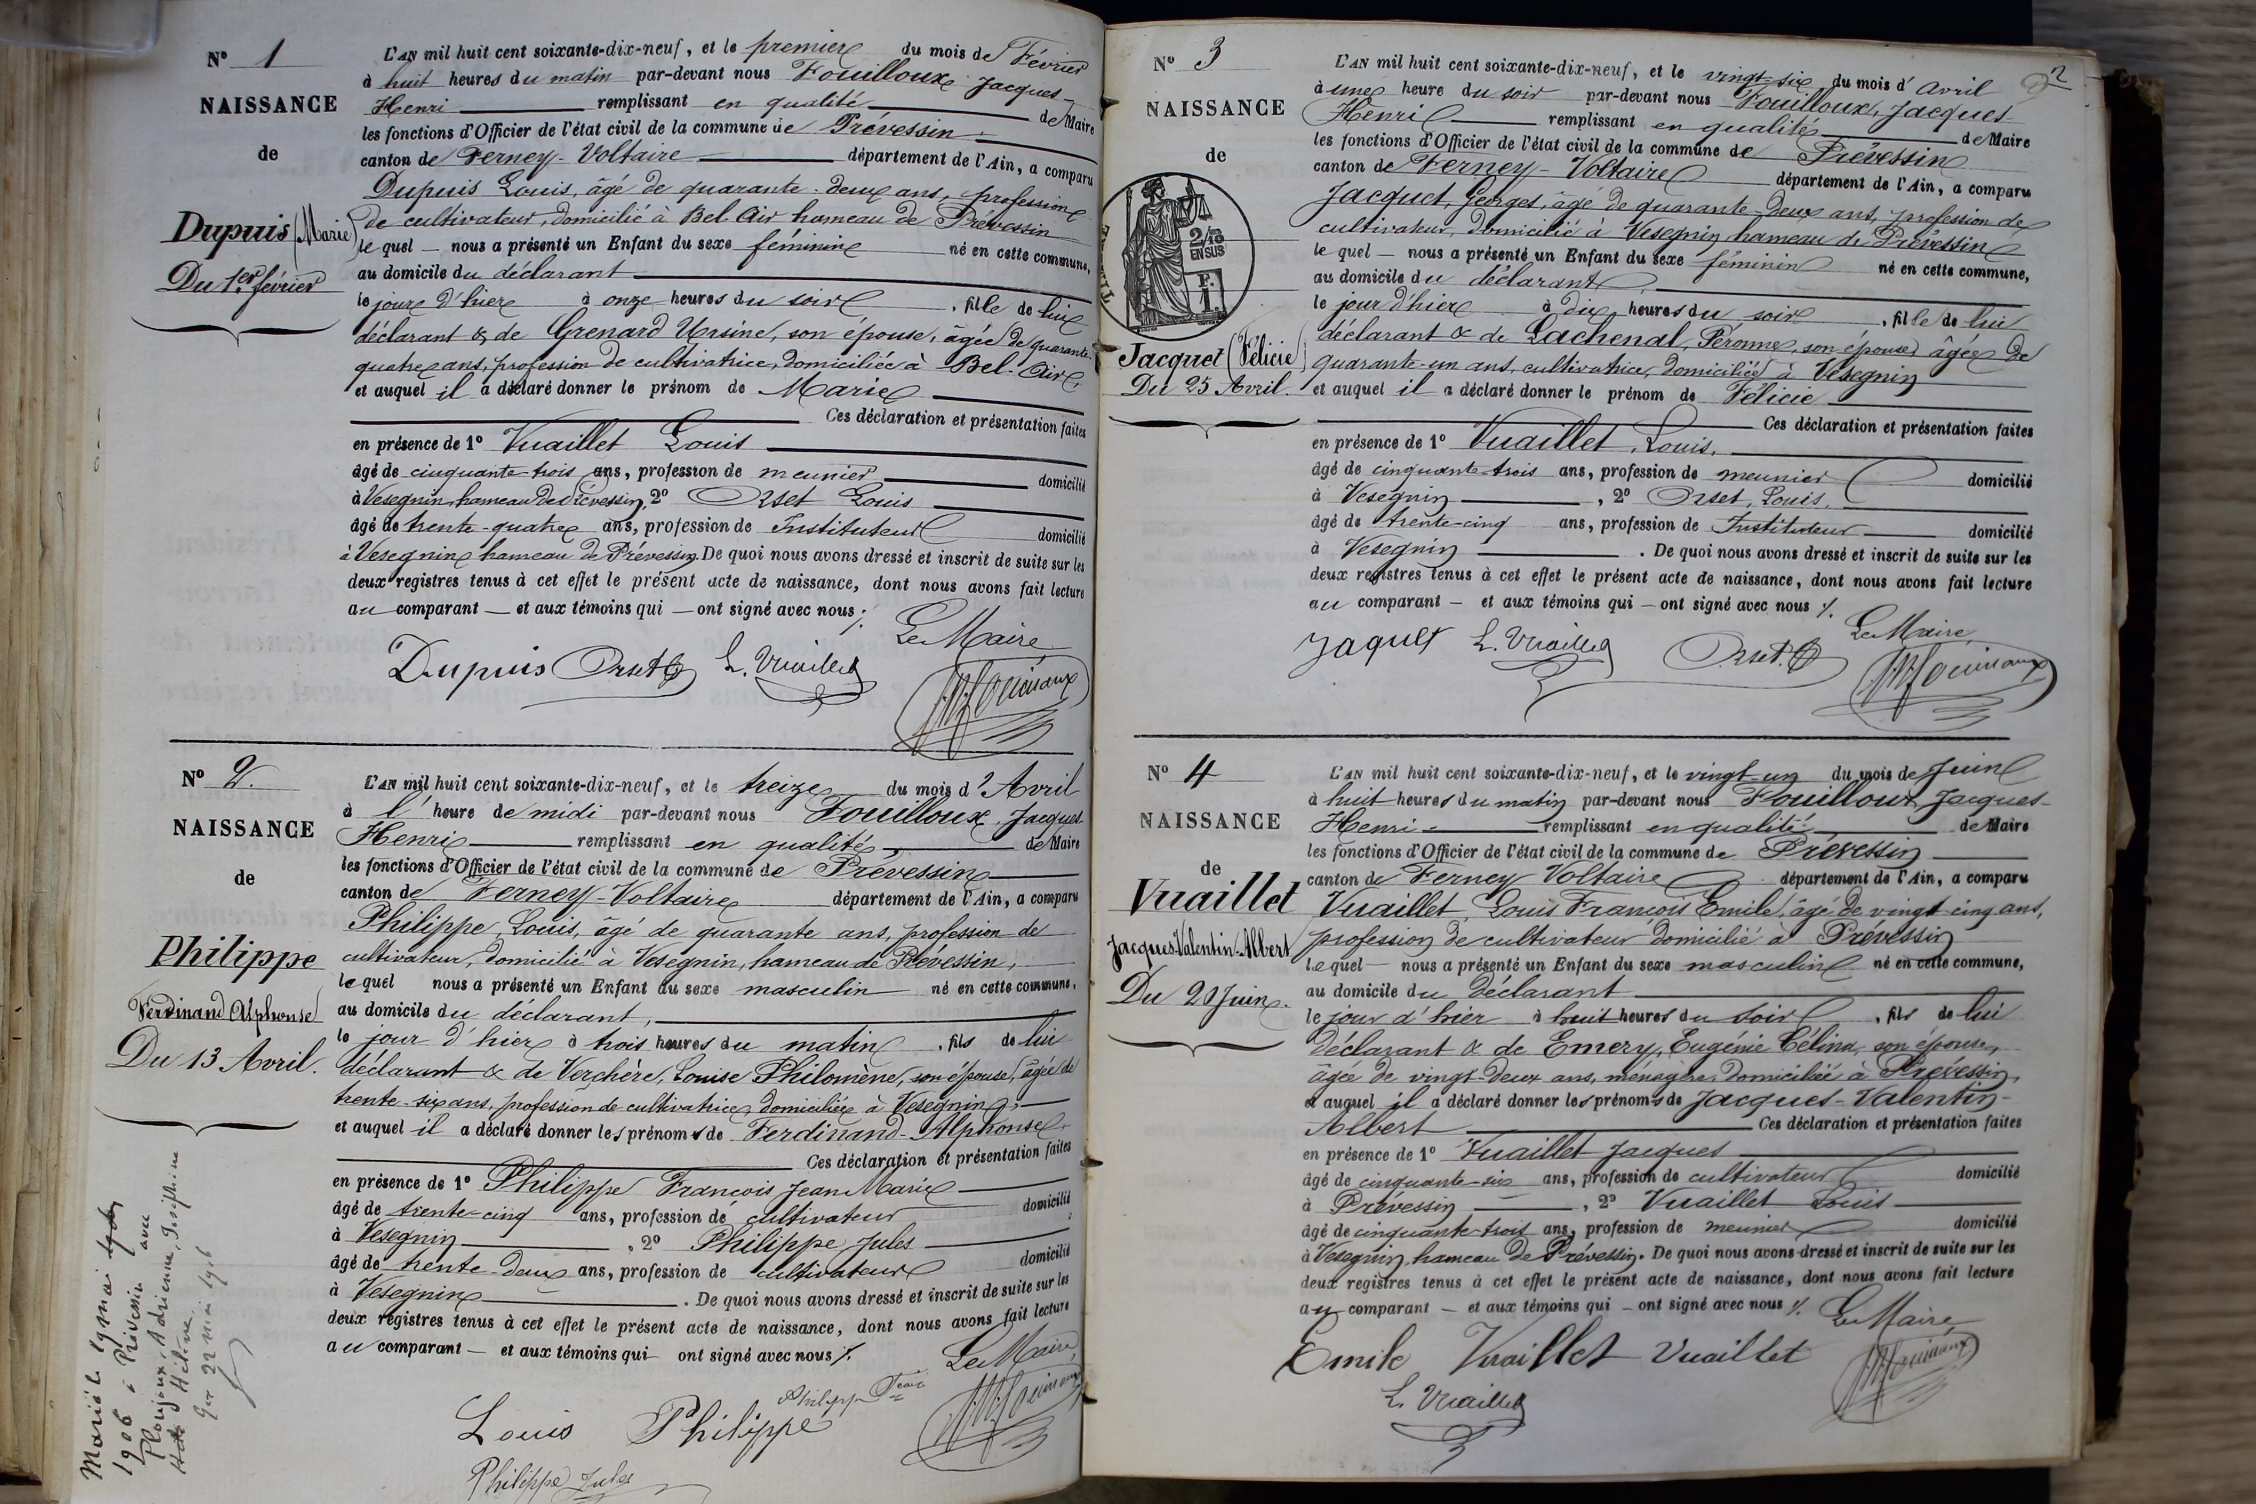 Nº 1
NAISSANCE
de
Dupuis (Marie)
Du 1er février
L'AN mil huit cent soixante-dix-neuf, et le premier du mois de Février
à huit heures du matin par-devant nous Fouilloux Jacques-
Henri remplissant en qualité de Maire
les fonctions d'Officier de l'état civil de la commune de Prévessin
canton de Ferney-Voltaire département de l'Ain, a comparu
Dupuis Louis, âgé de quarante-deux ans, profession
de cultivateur, domicilié à Bel Air hameau de Prévessin
le quel — nous a présenté un Enfant du sexe féminin né en cette commune,
au domicile du déclarant
le jour d'hier à onze heures du soir, fille de lui
déclarant & de Grenard Ursine, son épouse, âgée de quarante
quatre ans, profession de cultivatrice, domiciliée à Bel-Air,
et auquel il a déclaré donner le prénom de Marie
Ces déclaration et présentation faites
en présence de 1º Vuaillet Louis
âgé de cinquante trois ans, profession de meunier domicilié
à Vesegnin, hameau de Prévessin, 2º Orset Louis
âgé de trente-quatre ans, profession de Instituteur domicilié
à Vesegnin hameau de Prévessin. De quoi nous avons dressé et inscrit de suite sur les
deux registres tenus à cet effet le présent acte de naissance, dont nous avons fait lecture
au comparant — et aux témoins qui — ont signé avec nous ./.
Le Maire
Dupuis Orset L. Vuaillet
Nº 2.
NAISSANCE
de
Philippe
Ferdinand Alphonse
Du 13 Avril.
Marié le 19 mai
1906 à Prévessin avec
Adrienne, Joséphine
Hélène
22 mai 1906
L'AN mil huit cent soixante-dix-neuf, et le treize du mois d'Avril
à l'heure de midi par-devant nous Fouilloux, Jacques-
Henri remplissant en qualité, de Maire
les fonctions d'Officier de l'état civil de la commune de Prévessin
canton de Ferney-Voltaire département de l'Ain, a comparu
Philippe, Louis, âgé de quarante ans, profession de
cultivateur, domicilié à Vesegnin, hameau de Prévessin,
le quel nous a présenté un Enfant du sexe masculin né en cette commune,
au domicile du déclarant,
le jour d'hier à trois heures du matin, fils de lui
déclarant & de Verchère, Louise Philomène, son épouse, âgée de
trente-six ans, profession de cultivatrice, domiciliée à Vesegnin;
et auquel il a déclaré donner les prénoms de Ferdinand-Alphonse
Ces déclaration et présentation faites
en présence de 1º Philippe François Jean Marie
âgé de trente-cinq ans, profession de cultivateur domicilié
à Vesegnin, 2º Philippe Jules
âgé de trente-deux ans, profession de cultivateur domicilié
à Vesegnin. De quoi nous avons dressé et inscrit de suite sur les
deux registres tenus à cet effet le présent acte de naissance, dont nous avons fait lecture
au comparant — et aux témoins qui — ont signé avec nous ./.
Le Maire,
Louis Philippe Philippe
Philippe Jules
2
Nº 3
NAISSANCE
de
2/10
EN SUS
F.
1.
Jacquet (Félicie)
Du 25 Avril.
L'AN mil huit cent soixante-dix-neuf, et le vingt-six du mois d'avril
à une heure du soir par-devant nous Fouilloux, Jacques-
Henri remplissant en qualité de Maire
les fonctions d'Officier de l'état civil de la commune de Prévessin
canton de Ferney-Voltaire département de l'Ain, a comparu
Jacquet, Georges, âgé de quarante-deux ans, profession de
cultivateur, domicilié à Vesegnin hameau de Prévessin
le quel — nous a présenté un Enfant du sexe féminin né en cette commune,
au domicile du déclarant
le jour d'hier à dix heures du soir, fille de lui
déclarant & de Lachenal, Péronne, son épouse, âgée de
quarante-un ans, cultivatrice, domiciliée à Vesegnin
et auquel il a déclaré donner le prénom de Félicie
Ces déclaration et présentation faites
en présence de 1º Vuaillet, Louis,
âgé de cinquante-trois ans, profession de meunier domicilié
à Vesegnin, 2º Orset, Louis,
âgé de trente-cinq ans, profession de Instituteur domicilié
à Vesegnin. De quoi nous avons dressé et inscrit de suite sur les
deux registres tenus à cet effet le présent acte de naissance, dont nous avons fait lecture
au comparant — et aux témoins qui — ont signé avec nous ./.
Le Maire,
Jaquet L. Vuaillet Orset
Nº 4
NAISSANCE
de
Vuaillet
Jacques-Valentin-Albert
Du 20 Juin.
L'AN mil huit cent soixante-dix-neuf, et le vingt-un du mois de Juin
à huit heures du matin par-devant nous Fouilloux Jacques-
Henri remplissant en qualité de Maire
les fonctions d'Officier de l'état civil de la commune de Prévessin
canton de Ferney Voltaire département de l'Ain, a comparu
Vuaillet, Louis François Emile, âgé de vingt-cinq ans,
profession de cultivateur domicilié à Prévessin
le quel — nous a présenté un Enfant du sexe masculin né en cette commune,
au domicile du déclarant
le jour d'hier à huit heures du soir, fils de lui
déclarant & de Emery, Eugénie Célina, son épouse,
âgée de vingt-deux ans, ménagère, domiciliée à Prévessin,
et auquel il a déclaré donner les prénoms de Jacques-Valentin-
Albert Ces déclaration et présentation faites
en présence de 1º Vuaillet Jacques
âgé de cinquante-six ans, profession de cultivateur domicilié
à Prévessin, 2º Vuaillet Louis
âgé de cinquante-trois ans, profession de meunier domicilié
à Vesegnin, hameau de Prévessin. De quoi nous avons dressé et inscrit de suite sur les
deux registres tenus à cet effet le présent acte de naissance, dont nous avons fait lecture
au comparant — et aux témoins qui — ont signé avec nous ./.
Le Maire,
Emile Vuaillet Vuaillet
L. Vuaillet